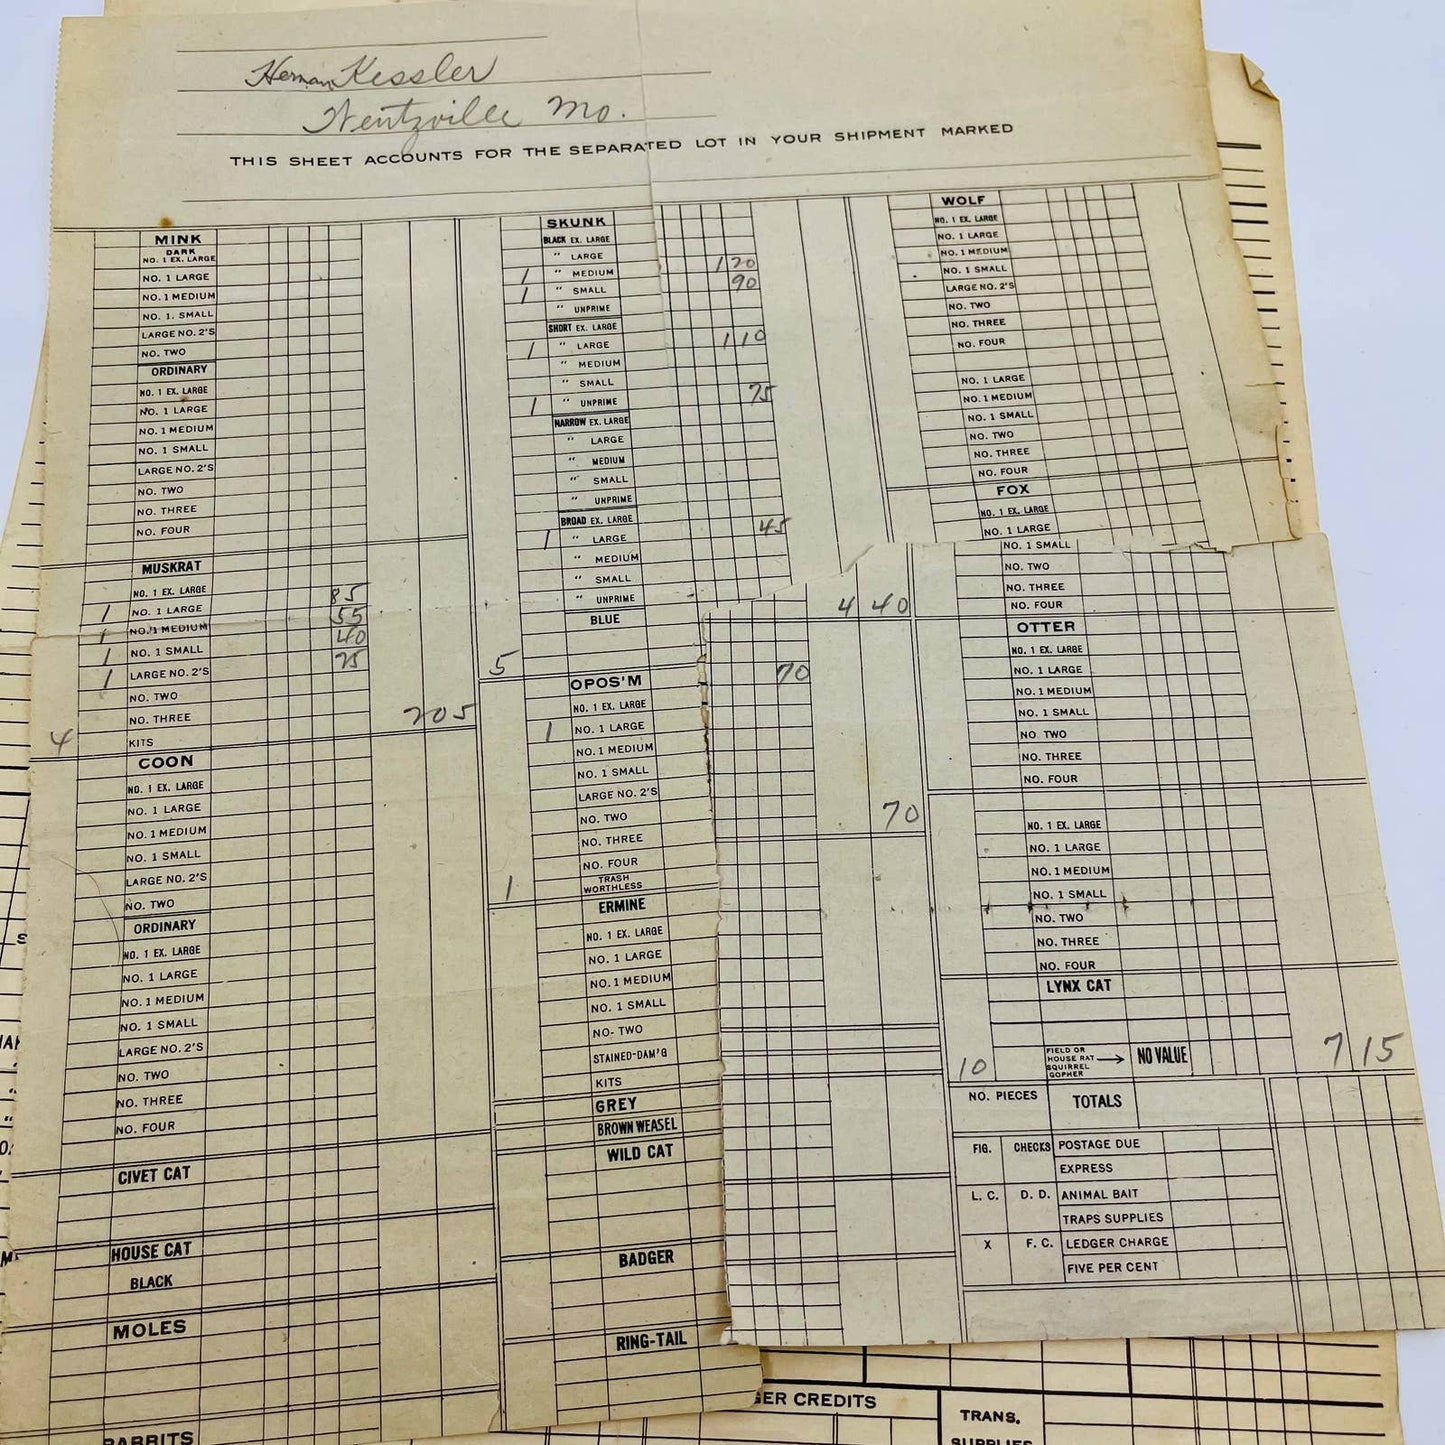 Herman Kessler
Wentzville Mo.
THIS SHEET ACCOUNTS FOR THE SEPARATED LOT IN YOUR SHIPMENT MARKED
MINK
DARK
NO. 1 EX. LARGE
NO. 1 LARGE
NO. 1 MEDIUM
NO. 1. SMALL
LARGE NO. 2'S
NO. TWO
ORDINARY
NO. 1 EX. LARGE
NO. 1 LARGE
NO. 1 MEDIUM
NO. 1 SMALL
LARGE NO. 2'S
NO. TWO
NO. THREE
NO. FOUR
MUSKRAT
NO. 1 EX. LARGE
1 NO. 1 LARGE 85
1 NO. 1 MEDIUM 55
1 NO. 1 SMALL 40
1 LARGE NO. 2'S 25
NO. TWO
NO. THREE
4 KITS 205
COON
NO. 1 EX. LARGE
NO. 1 LARGE
NO. 1 MEDIUM
NO. 1 SMALL
LARGE NO. 2'S
NO. TWO
ORDINARY
NO. 1 EX. LARGE
NO. 1 LARGE
NO. 1 MEDIUM
NO. 1 SMALL
LARGE NO. 2'S
NO. TWO
NO. THREE
NO. FOUR
CIVET CAT
HOUSE CAT
BLACK
MOLES
RABBITS
SKUNK
BLACK EX. LARGE
" LARGE
1 " MEDIUM 1 20
1 " SMALL 90
" UNPRIME
SHORT EX. LARGE
1 " LARGE 1 10
" MEDIUM
" SMALL
1 " UNPRIME 75
NARROW EX. LARGE
" LARGE
" MEDIUM
" SMALL
" UNPRIME
BROAD EX. LARGE
1 " LARGE 45
" MEDIUM
" SMALL
" UNPRIME
BLUE
5 4 40
OPOS'M
NO. 1 EX. LARGE
1 NO. 1 LARGE 70
NO. 1 MEDIUM
NO. 1 SMALL
LARGE NO. 2'S
NO. TWO
NO. THREE
NO. FOUR
1 TRASH WORTHLESS 70
ERMINE
NO. 1 EX. LARGE
NO. 1 LARGE
NO. 1 MEDIUM
NO. 1 SMALL
NO- TWO
STAINED-DAM'G
KITS
GREY
BROWN WEASEL
WILD CAT
BADGER
RING-TAIL
WOLF
NO. 1 EX. LARGE
NO. 1 LARGE
NO. 1 MEDIUM
NO. 1 SMALL
LARGE NO. 2'S
NO. TWO
NO. THREE
NO. FOUR
NO. 1 LARGE
NO. 1 MEDIUM
NO. 1 SMALL
NO. TWO
NO. THREE
NO. FOUR
FOX
NO. 1 EX. LARGE
NO. 1 LARGE
NO. 1 SMALL
NO. TWO
NO. THREE
NO. FOUR
OTTER
NO. 1 EX. LARGE
NO. 1 LARGE
NO. 1 MEDIUM
NO. 1 SMALL
NO. TWO
NO. THREE
NO. FOUR
NO. 1 EX. LARGE
NO. 1 LARGE
NO. 1 MEDIUM
NO. 1 SMALL
NO. TWO
NO. THREE
NO. FOUR
LYNX CAT
FIELD OR
HOUSE RAT
SQUIRREL
GOPHER
NO VALUE
10 7 15
NO. PIECES TOTALS
FIG. CHECKS POSTAGE DUE
EXPRESS
L. C. D. D. ANIMAL BAIT
TRAPS SUPPLIES
X F. C. LEDGER CHARGE
FIVE PER CENT
GER CREDITS
TRANS.
SUPPLIES